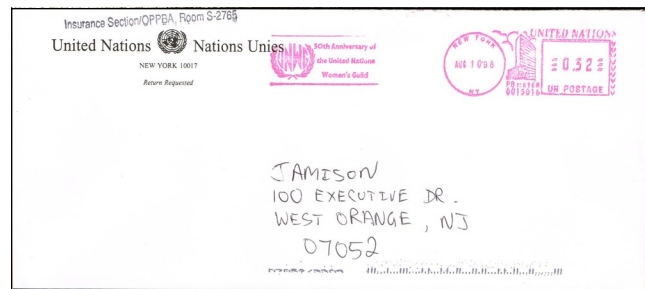 Insurance Section/OPPBA, Room S-2765
United Nations Nations Unies
NEW YORK 10017
Return Requested
UNWG
50th Anniversary of
the United Nations
Women's Guild
NEW YORK
AUG 10 98
NY
UNITED NATIONS
0.32
PB METER
0015016
UN POSTAGE
JAMISON
100 EXECUTIVE DR.
WEST ORANGE, NJ
07052